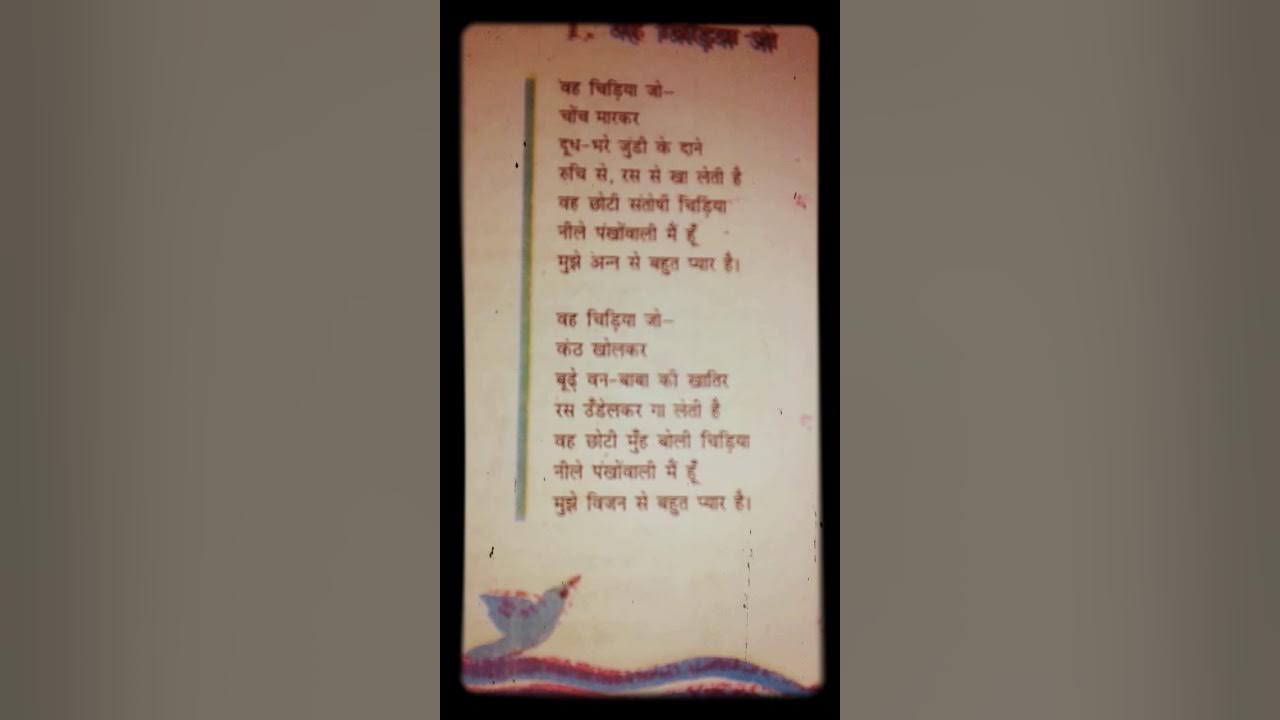 1. वह चिड़िया जो
वह चिड़िया जो–
चोंच मारकर
दूध-भरे जुंडी के दाने
रुचि से, रस से खा लेती है
वह छोटी संतोषी चिड़िया
नीले पंखोंवाली मैं हूँ
मुझे अन्न से बहुत प्यार है।
वह चिड़िया जो–
कंठ खोलकर
बूढ़े वन-बाबा की खातिर
रस उँडेलकर गा लेती है
वह छोटी मुँह बोली चिड़िया
नीले पंखोंवाली मैं हूँ
मुझे विजन से बहुत प्यार है।